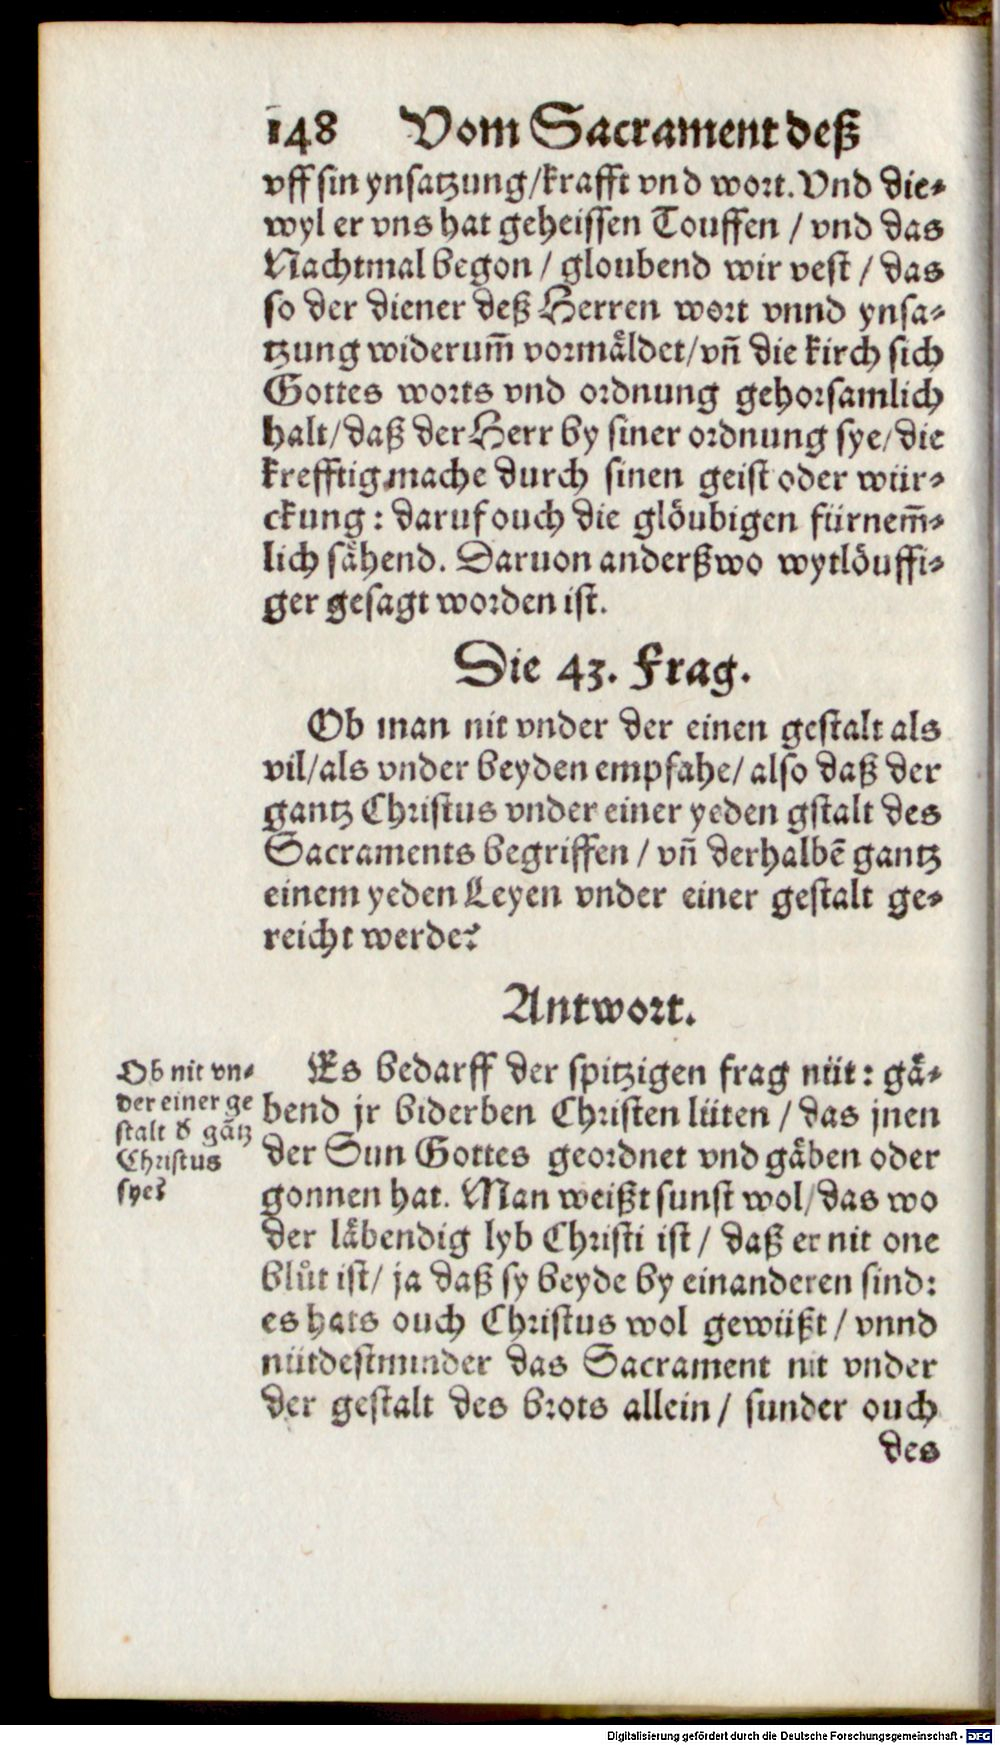 148 Vom Sacrament deß
vff sin ynsatzung/krafft vnd wort. Vnd die-
wyl er vns hat geheissen Touffen / vnd das
Nachtmal begon / gloubend wir vest / das
so der diener deß Herren wort vnnd ynsa-
tzung widerum̃ vormåldet/vñ die kirch sich
Gottes worts vnd ordnung gehorsamlich
halt/daß der Herr by siner ordnung sye/die
krefftig mache durch sinen geist oder wür-
ckung: daruf ouch die glöubigen fürnem̃-
lich såhend. Daruon anderßwo wytlöuffi-
ger gesagt worden ist.
Die 43. Frag.
Ob man nit vnder der einen gestalt als
vil/als vnder beyden empfahe/ also daß der
gantz Christus vnder einer yeden gstalt des
Sacraments begriffen / vñ derhalbē gantz
einem yeden Leyen vnder einer gestalt ge-
reicht werde?
Antwort.
Ob nit vn-
der einer ge
stalt d̕ gātz
Christus
sye?
Es bedarff der spitzigen frag nüt: gå-
bend jr biderben Christen lüten / das jnen
der Sun Gottes geordnet vnd gåben oder
gonnen hat. Man weißt sunst wol/das wo
der låbendig lyb Christi ist / daß er nit one
blůt ist/ ja daß sy beyde by einanderen sind:
es hats ouch Christus wol gewüßt / vnnd
nütdestminder das Sacrament nit vnder
der gestalt des brots allein / sunder ouch
des
Digitalisierung gefördert durch die Deutsche Forschungsgemeinschaft - DFG